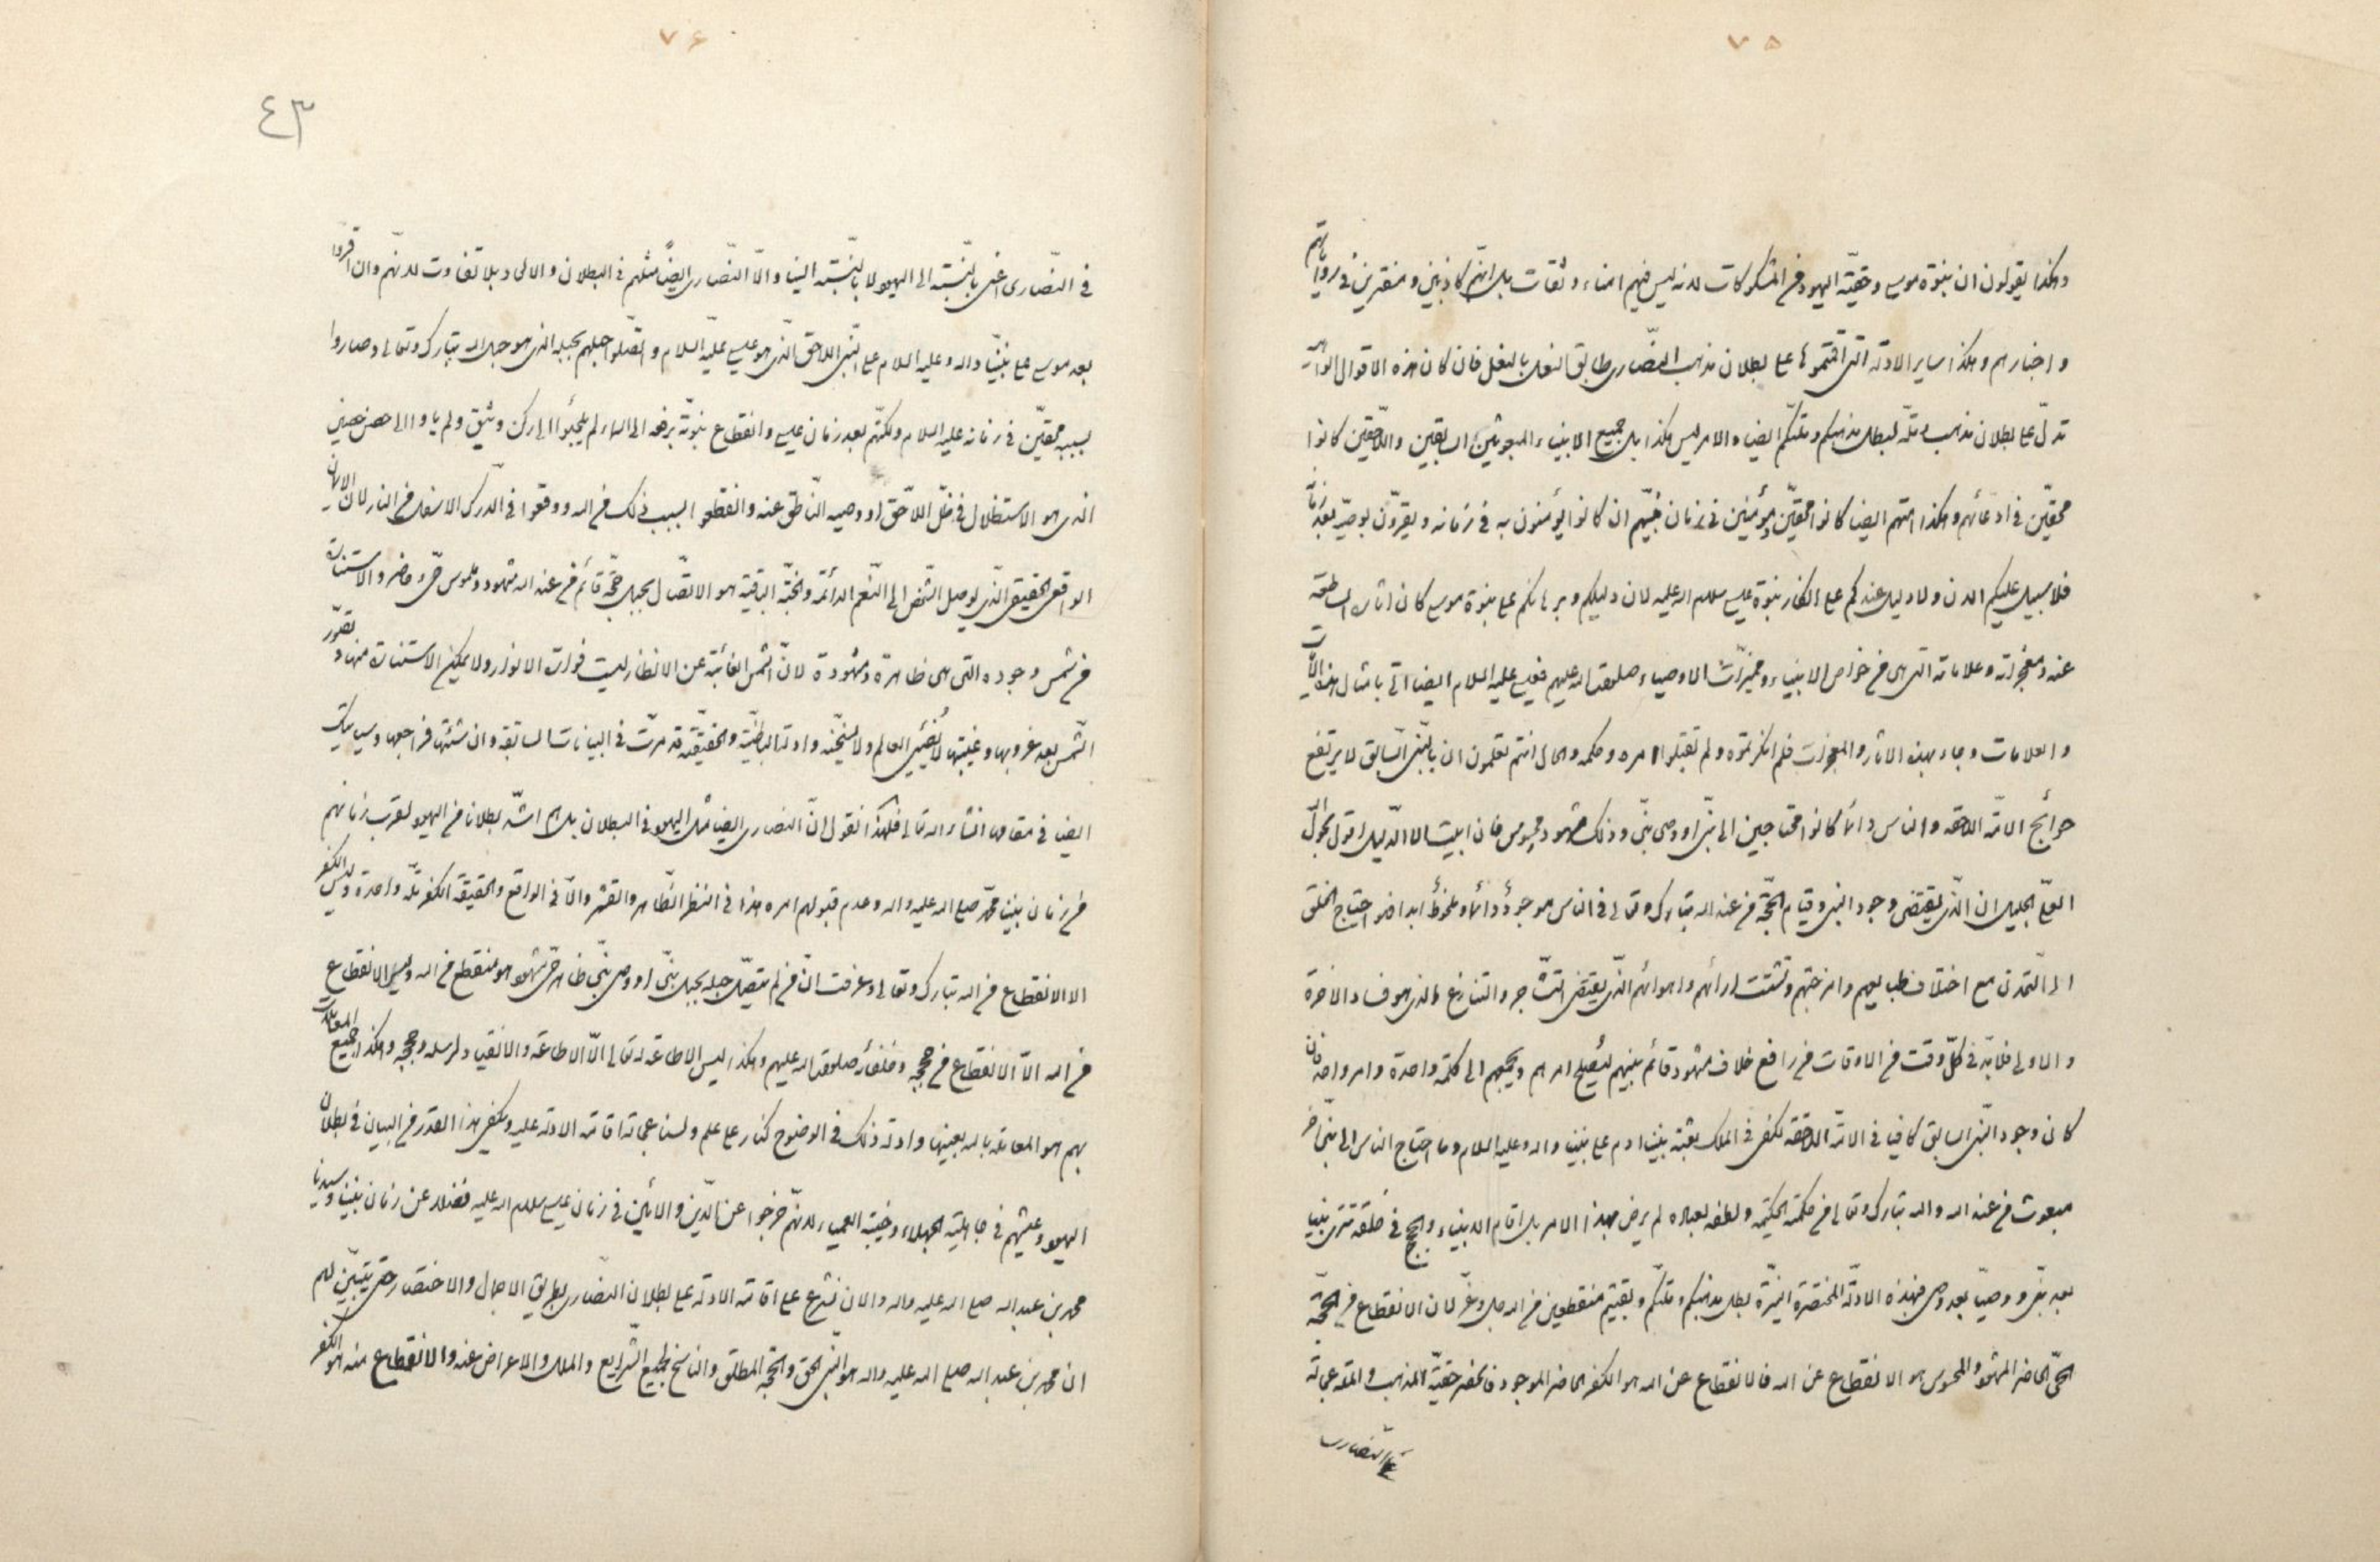 ۷۵
وهكذا يقولون ان بنبوة موسى وحقيّة اليهود من المشكوكات لانه ليس فيهم امناء وثقات بل انهم كاذبين ومفترين في رواياتهم
واخبارهم وهكذا ساير الادلة التى اقمتموها على بطلان مذهب النصّارى طابق النعل بالنعل فان كان هذه الاقوال الواهية
تدلّ على بطلان مذهب وملّة لبطل مذهبكم وملتكم ايضا والامر ليس هكذا بل جميع الانبياء المبعوثين السابقين واللاحقين كانوا
محقّين في ادعائهم وهكذا امتهم ايضا كانوا محقّين ومؤمنين في زمان نبيّهم ان كانوا يؤمنون به في زمانه ويقرّون بوصيّه بعد زمانه
فلا سبيل عليكم الان ولا دليل عندكم على انكار نبوة عيسى سلام اله عليه لان دليلكم وبرهانكم على نبوة موسى كان اثاره الساطعة
عنه ومعجزاته وعلاماته التى هى من خواص الانبياء ومميزات الاوصياء صلوات اله عليهم فعيسى عليه السلام ايضا اتى بامثال هذه الايات
والعلامات وجاء بهذه الاثار والمعجزات فلم انكرتموه ولم تقبلوا امره وحكمه والحال انتم تعلمون ان بالنبّى السّابق لا يرتفع
حوائج الامّة اللاحقة والناس دائما كانوا محتاجين الى نبّى او وصى نبّى وذلك مشهود محسوس فان ابيت الا الدّليل اقول بحول الله
العلىّ الجليل ان الّذى يقتضى وجود النبى وقيام الحجّة من عند اله تبارك وتعالى في الناس موجودٌ دائما وملحوظٌ ابدا فهو احتياج الخلق
الى التمدّن مع اختلاف طبايعهم وامزجتهم وتشتّت ارائهم واهوائهم الذّى يقتضى التشّاجر والتنازع والذى هو فساد الاخرة
والاولى فلا بدّ في كلّ وقت من الاوقات من رافع خلاف مشهود قائم بينهم ليصلح امرهم ويجمعهم الى كلمة واحدة وامر واحد فان
كان وجود النبّى السابق كافيا في الامّة اللاحقة لكفى في الملك بعثة نبينا ادم على نبينا واله وعليه السلام وما احتاج الناس الى نبّى اخر
مبعوث من عند اله واله تبارك وتعالى من حكمته الحكيمة ولطفه لعباده لم يرض بهذا الامر بل اقام الانبياء والحجج في خلقه تترى نبيا
بعد نبّى ووصيّ بعد وصى فبهذه الادلّة المختصرة النيّرة بطل مذهبكم وملتكم وبقيتم منقطعين من اله جل وعزّ لان الانقطاع من الحجّة
الحىّ الحاضر المشهود والمحسوس هو الانقطاع عن اله فالانقطاع عن اله هو الكفر الحاضر الموجود فانحصر حقيّة المذهب والملة عجالة
في النصّارى
۷۶
٤٣
في النصّارى اعنى بالنّسبة الى اليهود لا بالنّسبة الينا والّا النصّارى ايضًا مثلهم في البطلان والالحاد بلا تفاوت لانّهم وان اقرّوا
بعد موسى على نبيّنا واله وعليه السلام على النبّى اللاحق الّذى هو عيسى عليه السلام واتّصلوا حبلهم بحبله الذى هو حبل اله تبارك وتعالى وصاروا
بسببه محقّين في زمانه عليه السلام ولكنّهم بعد زمان عيسى وانقطاع نبوّته برفعه الى السماء لم يلجئوا الى ركن وثيق ولم ياووا الى حصن حصين
الذى هو الاستظلال في ظلّ اللاّحق او وصيه النّاطق عنه وانقطعوا بسبب ذلك من اله ووقعوا في الدّرك الاسفل من النار لان الايمان
الواقعى الحقيقى الذّى يوصل الشّخص الى النّعم الدائمة والجنّة الباقية هو الاتصّال بحبل حجّة قائم من عند اله مشهود وملموس حىّ وحاضر والاستنارة
من شمس وجوده التى هى ظاهرة ومشهودة لانّ الشّمس الغائبة عن الانظار ليست فوارة الانوار ولا يمكن الاستنارة منها ونور
الشّمس بعد غروبها وغيبتها لا يضيئ العالم ولا يسخّنه وادلته الباطنيّة والحقيقّة قد مرّت في البيانات السابقة وان شئتها فراجعها وسياتيك
ايضا في مقامها انشاء اله تعالى فلهذا نقول انّ النصارى ايضا مثل اليهود في البطلان بل هم اشدّ بطلانا من اليهود لقرب زمانهم
من زمان نبينا محمّد صلى اله عليه واله وعدم قبولهم امره هذا في النظر الظّاهر والقشر والّا في الواقع والحقيقة الكفر ملّة واحدة وليس الكفر
الا الانقطاع من اله تبارك وتعالى وعرفت انّ من لم يتصّل حبله بحبل نبّى او وصى نبّى ظاهر حىّ مشهود هو منقطع من اله وليس الانقطاع
من اله الّا الانقطاع من حججه وخلفائه صلوات اله عليهم وهكذا ليس الاطاعة له تعالى الّا الاطاعة والانقياد لرسله وحججه وهكذا جميع المعاملات
بهم هو المعاملة باله بعينها وادلة ذلك في الوضوح كنار على علم ولسنا عجالة اقامة الادلة عليه ويكفى هذا القدر من البيان في بطلان
اليهود وعيشهم في جاهلية الجهلاء وخيبة العمياء لانهّم خرجوا عن الدّين والائين في زمان عيسى سلام اله عليه فضلا عن زمان نبينا وسيدنا
محمد بن عبداله صلى اله عليه واله والان نشرع على اقامة الادلة على بطلان النصّارى بطريق الاجمال والاختصار حتّى يتبيّن لهم
ان محمد بن عبد اله صلى اله عليه واله هو النبّى الحق والحجّة المطلق والناسخ لجميع الشّرايع والملل والاعراض عنه والانقطاع منه هو الكفر